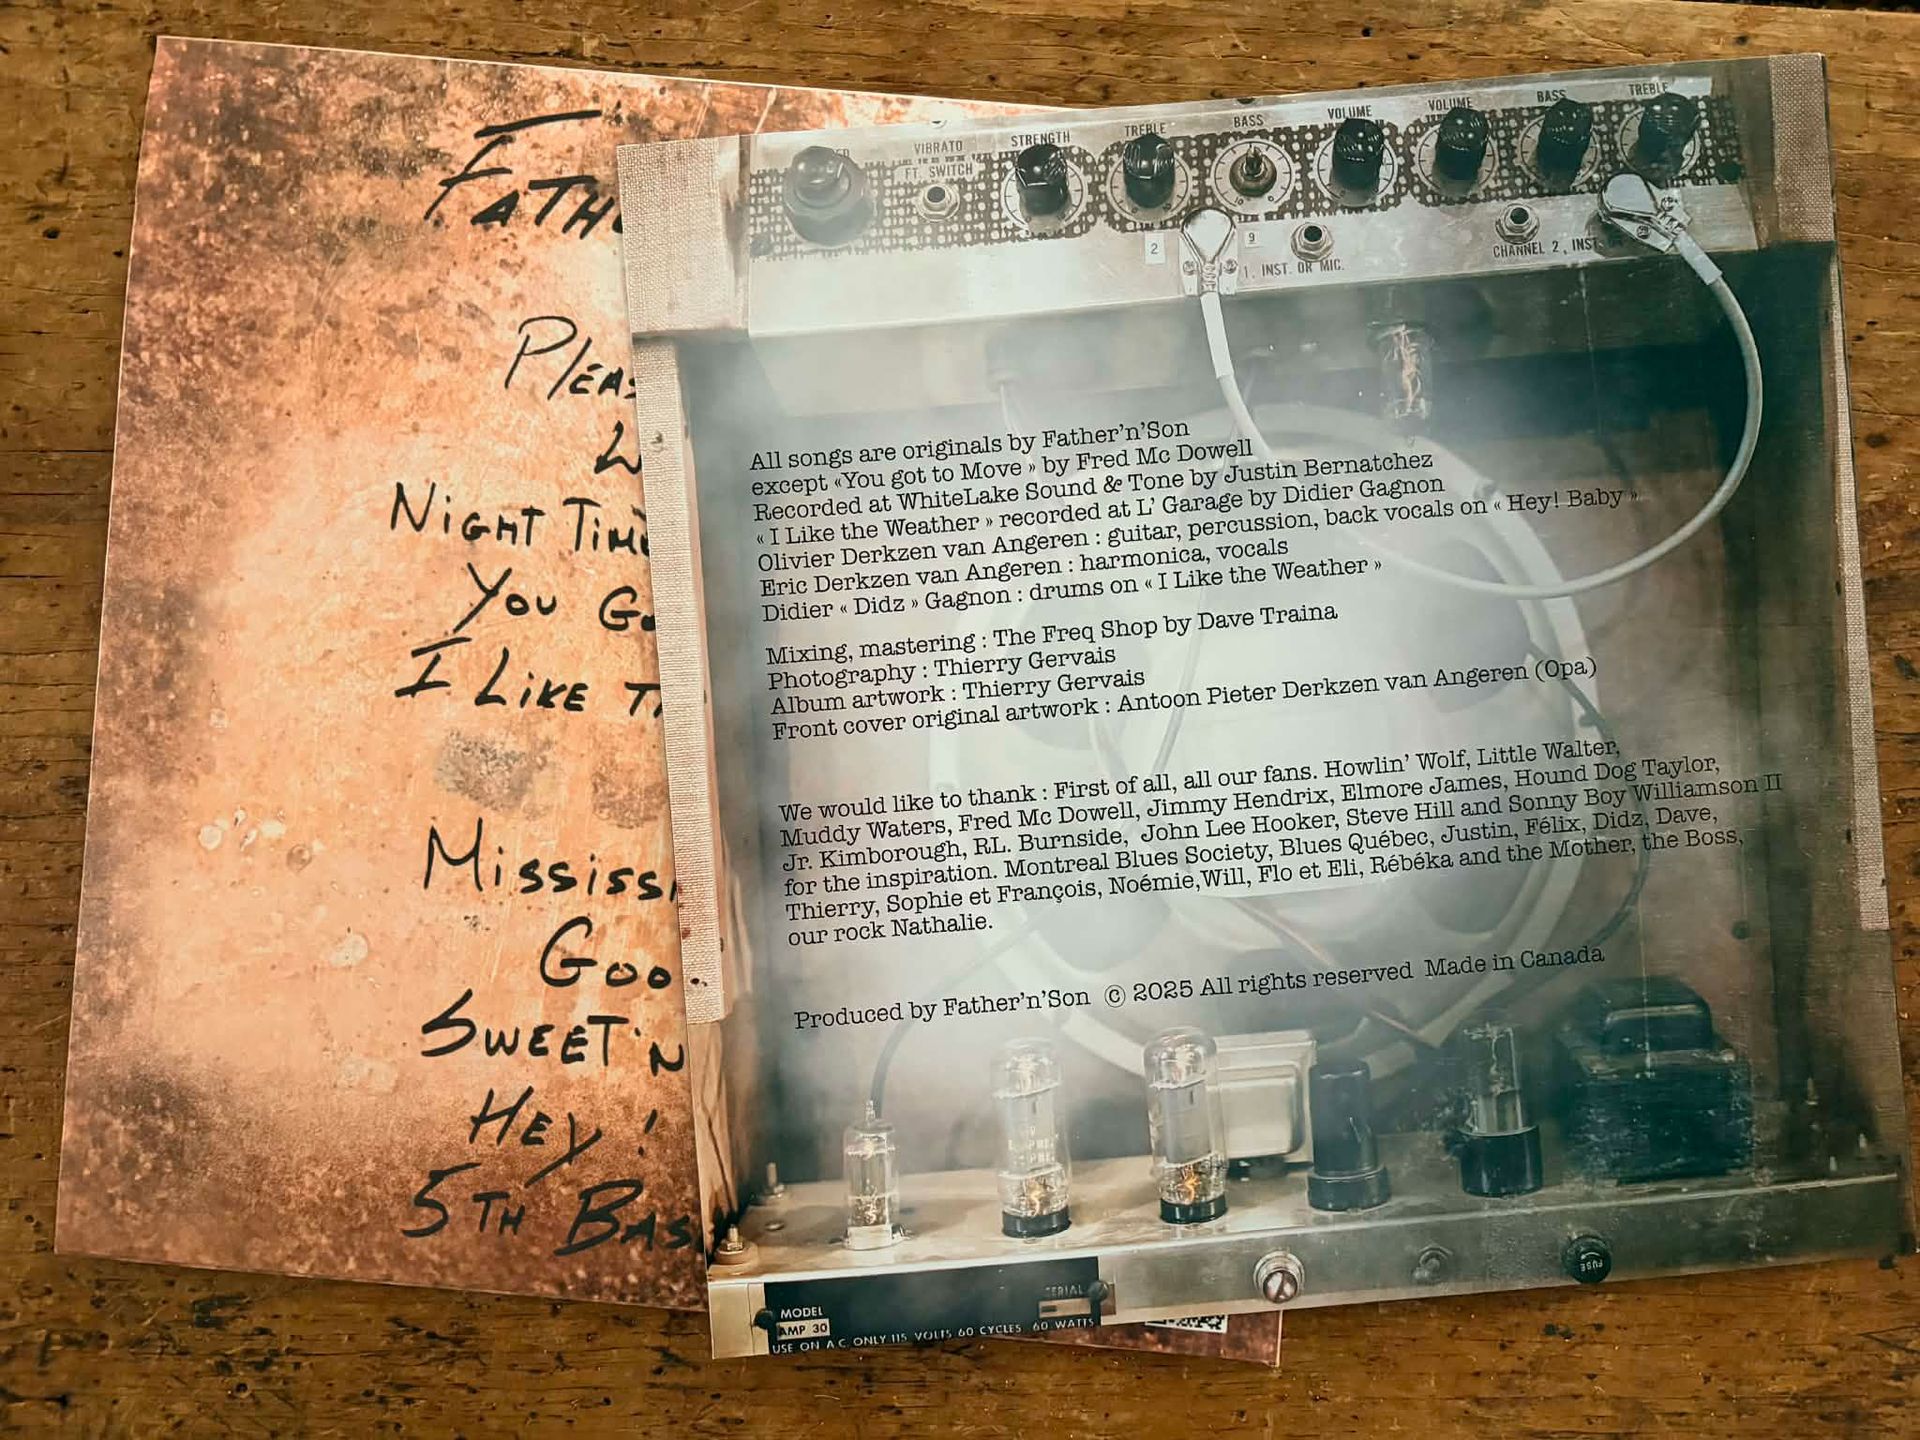 FATH
PLEAS
NIGHT TIME
YOU GO
I LIKE T
MISSISSI
GOO
SWEET'N
HEY!
5TH BAS
VIBRATO
STRENGTH
TREBLE
BASS
VOLUME
VOLUME
BASS
TREBLE
FT. SWITCH
2
9
1, INST. OR MIC.
CHANNEL 2, INST.
All songs are originals by Father'n'Son
except «You got to Move » by Fred Mc Dowell
Recorded at WhiteLake Sound & Tone by Justin Bernatchez
« I Like the Weather » recorded at L' Garage by Didier Gagnon
Olivier Derkzen van Angeren : guitar, percussion, back vocals on « Hey! Baby »
Eric Derkzen van Angeren : harmonica, vocals
Didier « Didz » Gagnon : drums on « I Like the Weather »
Mixing, mastering : The Freq Shop by Dave Traina
Photography : Thierry Gervais
Album artwork : Thierry Gervais
Front cover original artwork : Antoon Pieter Derkzen van Angeren (Opa)
We would like to thank : First of all, all our fans. Howlin' Wolf, Little Walter,
Muddy Waters, Fred Mc Dowell, Jimmy Hendrix, Elmore James, Hound Dog Taylor,
Jr. Kimborough, RL. Burnside, John Lee Hooker, Steve Hill and Sonny Boy Williamson II
for the inspiration. Montreal Blues Society, Blues Québec, Justin, Félix, Didz, Dave,
Thierry, Sophie et François, Noémie,Will, Flo et Eli, Rébéka and the Mother, the Boss,
our rock Nathalie.
Produced by Father'n'Son © 2025 All rights reserved Made in Canada
FUSE
MODEL
SERIAL
AMP 30
USE ON A.C. ONLY 115 VOLTS 60 CYCLES 60 WATTS